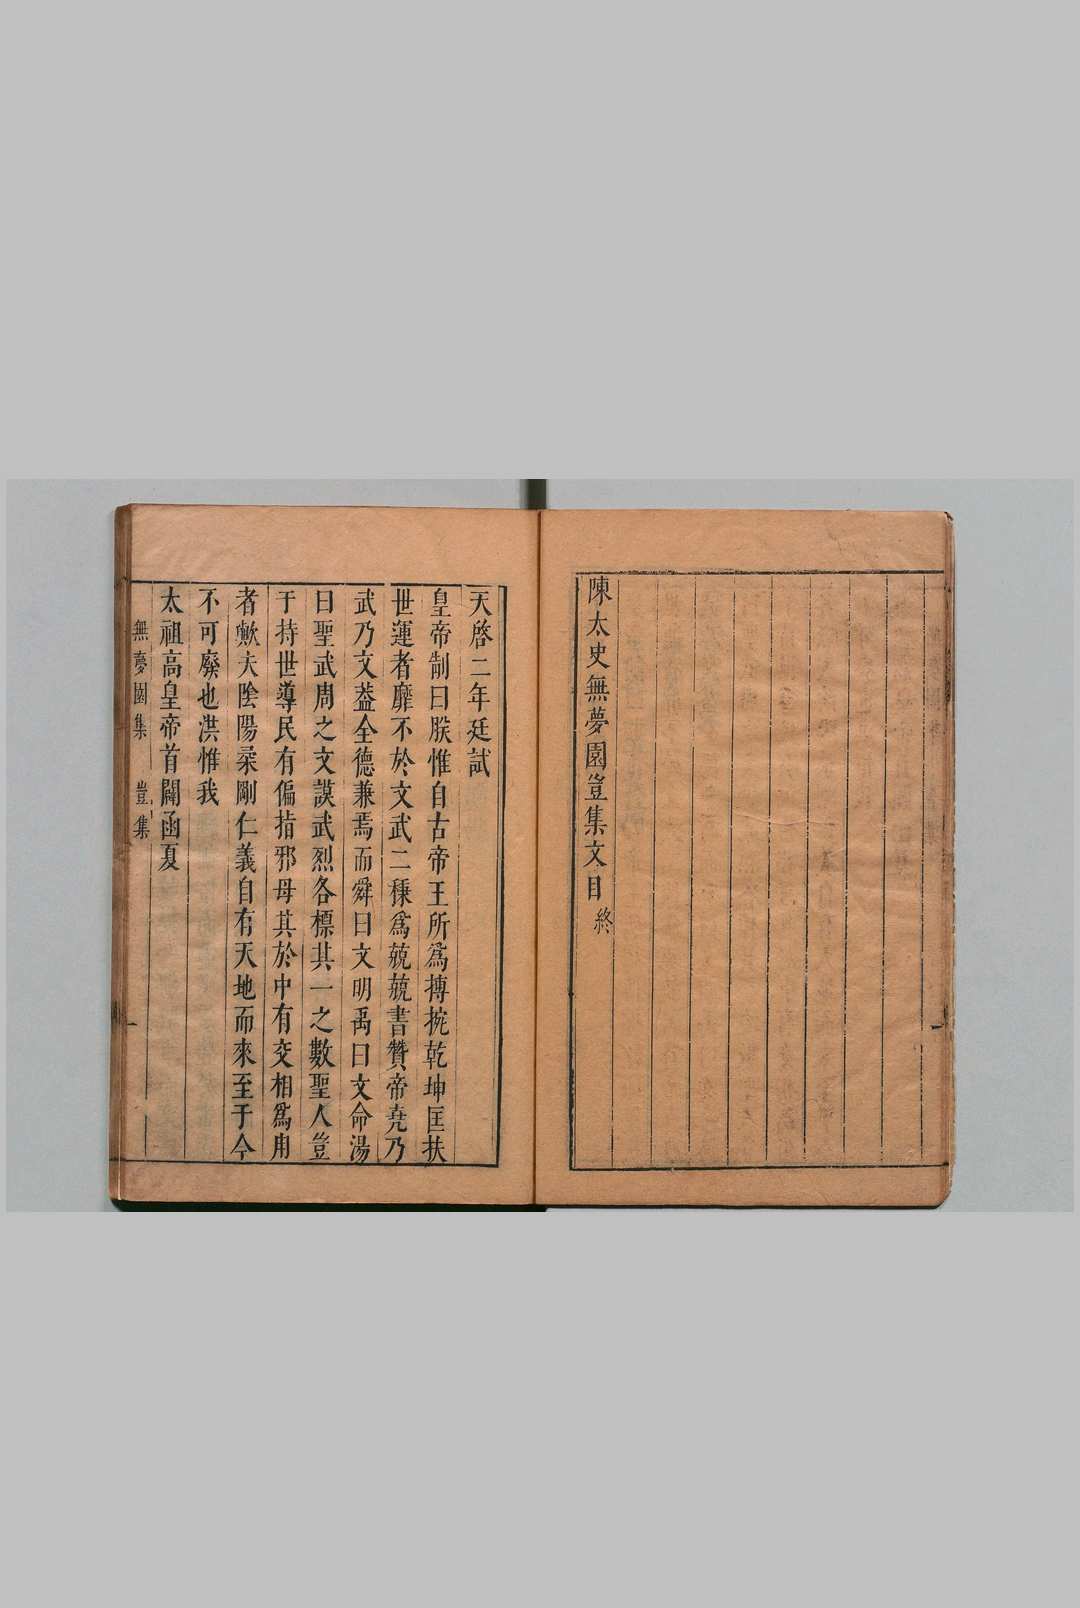 陳太史無夢園豈集文目終
天啓二年廷試
皇帝制曰朕惟自古帝王所爲摶捖乾坤匡扶
世運者靡不於文武二稱爲兢兢書贊帝堯乃
武乃文葢全德兼焉而舜曰文明禹曰文命湯
曰聖武周之文謨武烈各標其一之數聖人豈
于持世導民有偏指邪毋其於中有交相爲用
者歟夫陰陽柔剛仁義自有天地而來至于今
不可廢也洪惟我
太祖高皇帝首闢函夏
無夢園集 豈集 一